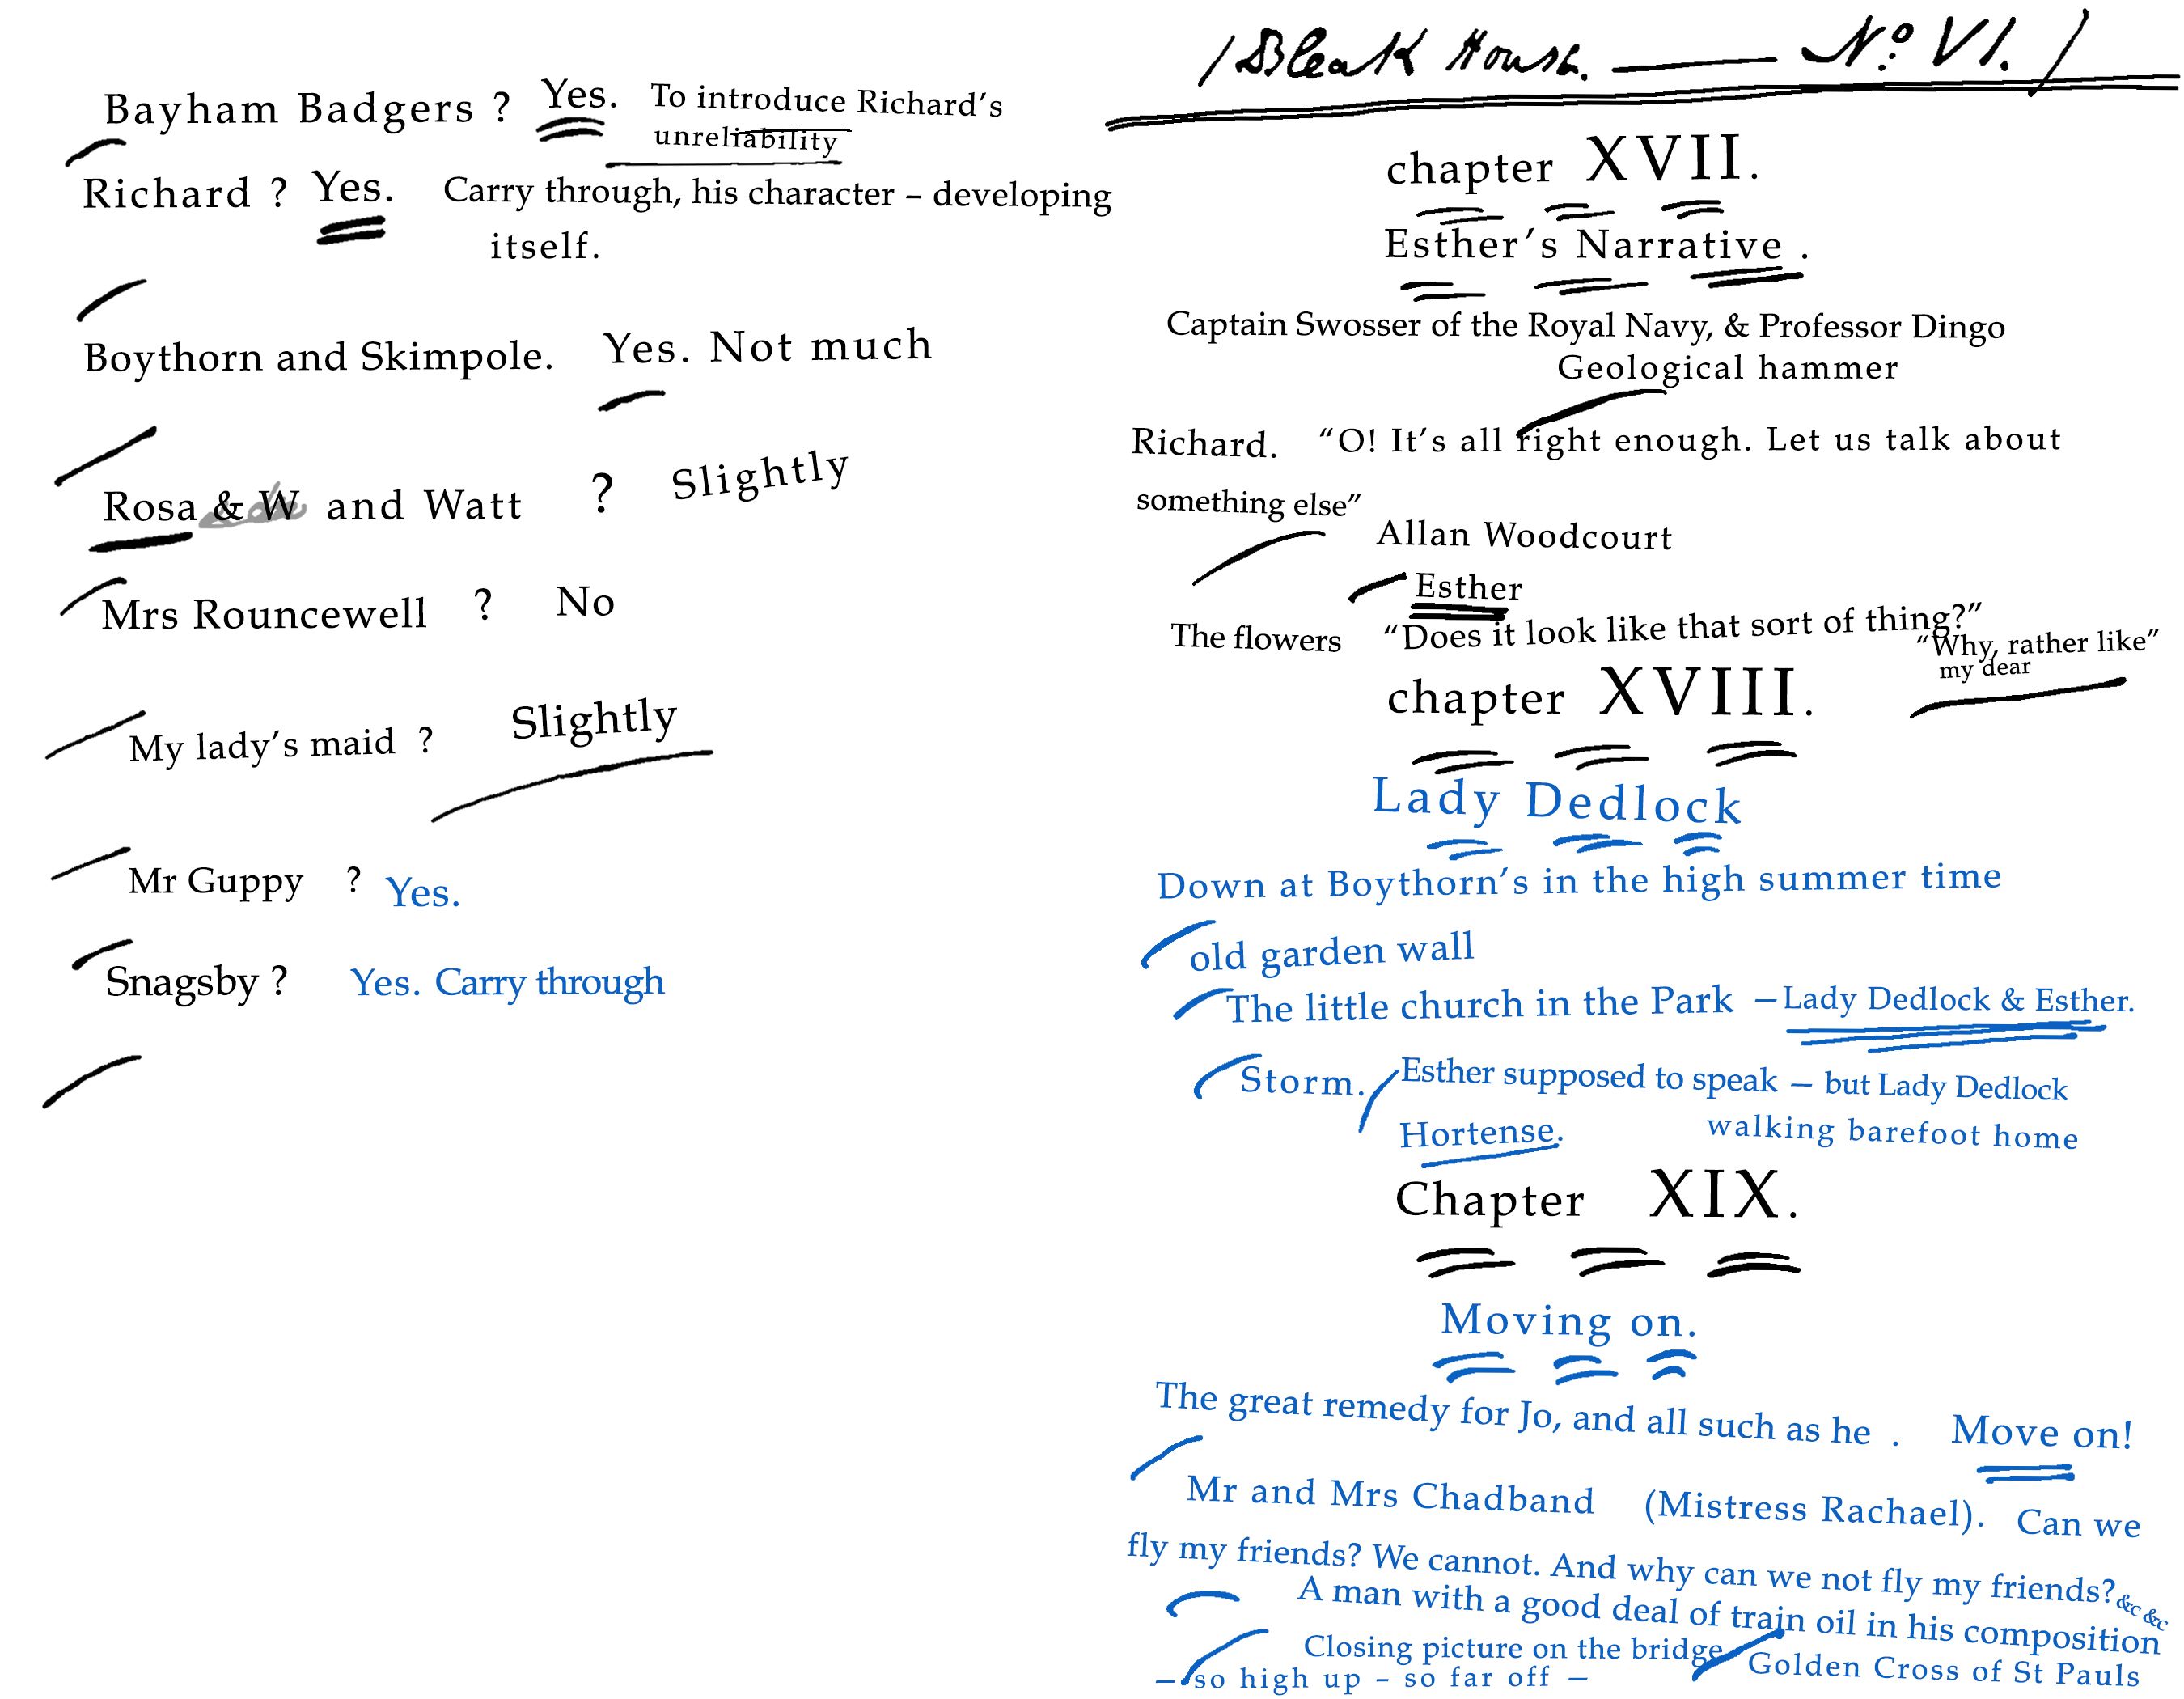 Bayham Badgers ? Yes. To introduce Richard's
unreliability
Richard ? Yes. Carry through, his character – developing
itself.
Boythorn and Skimpole. Yes. Not much
Rosa & W and Watt ? Slightly
Mrs Rouncewell ? No
My lady's maid ? Slightly
Mr Guppy ? Yes.
Snagsby ? Yes. Carry through
/Bleak House. — No. VI./
chapter XVII.
Esther's Narrative .
Captain Swosser of the Royal Navy, & Professor Dingo
Geological hammer
Richard. “O! It's all right enough. Let us talk about
something else”
Allan Woodcourt
Esther
The flowers “Does it look like that sort of thing?”
“Why, rather like”
my dear
chapter XVIII.
Lady Dedlock
Down at Boythorn's in the high summer time
old garden wall
The little church in the Park – Lady Dedlock & Esther.
Storm. / Esther supposed to speak – but Lady Dedlock
Hortense. walking barefoot home
Chapter XIX.
Moving on.
The great remedy for Jo, and all such as he . Move on!
Mr and Mrs Chadband (Mistress Rachael). Can we
fly my friends? We cannot. And why can we not fly my friends? &c &c
A man with a good deal of train oil in his composition
Closing picture on the bridge Golden Cross of St Pauls
– so high up – so far off –